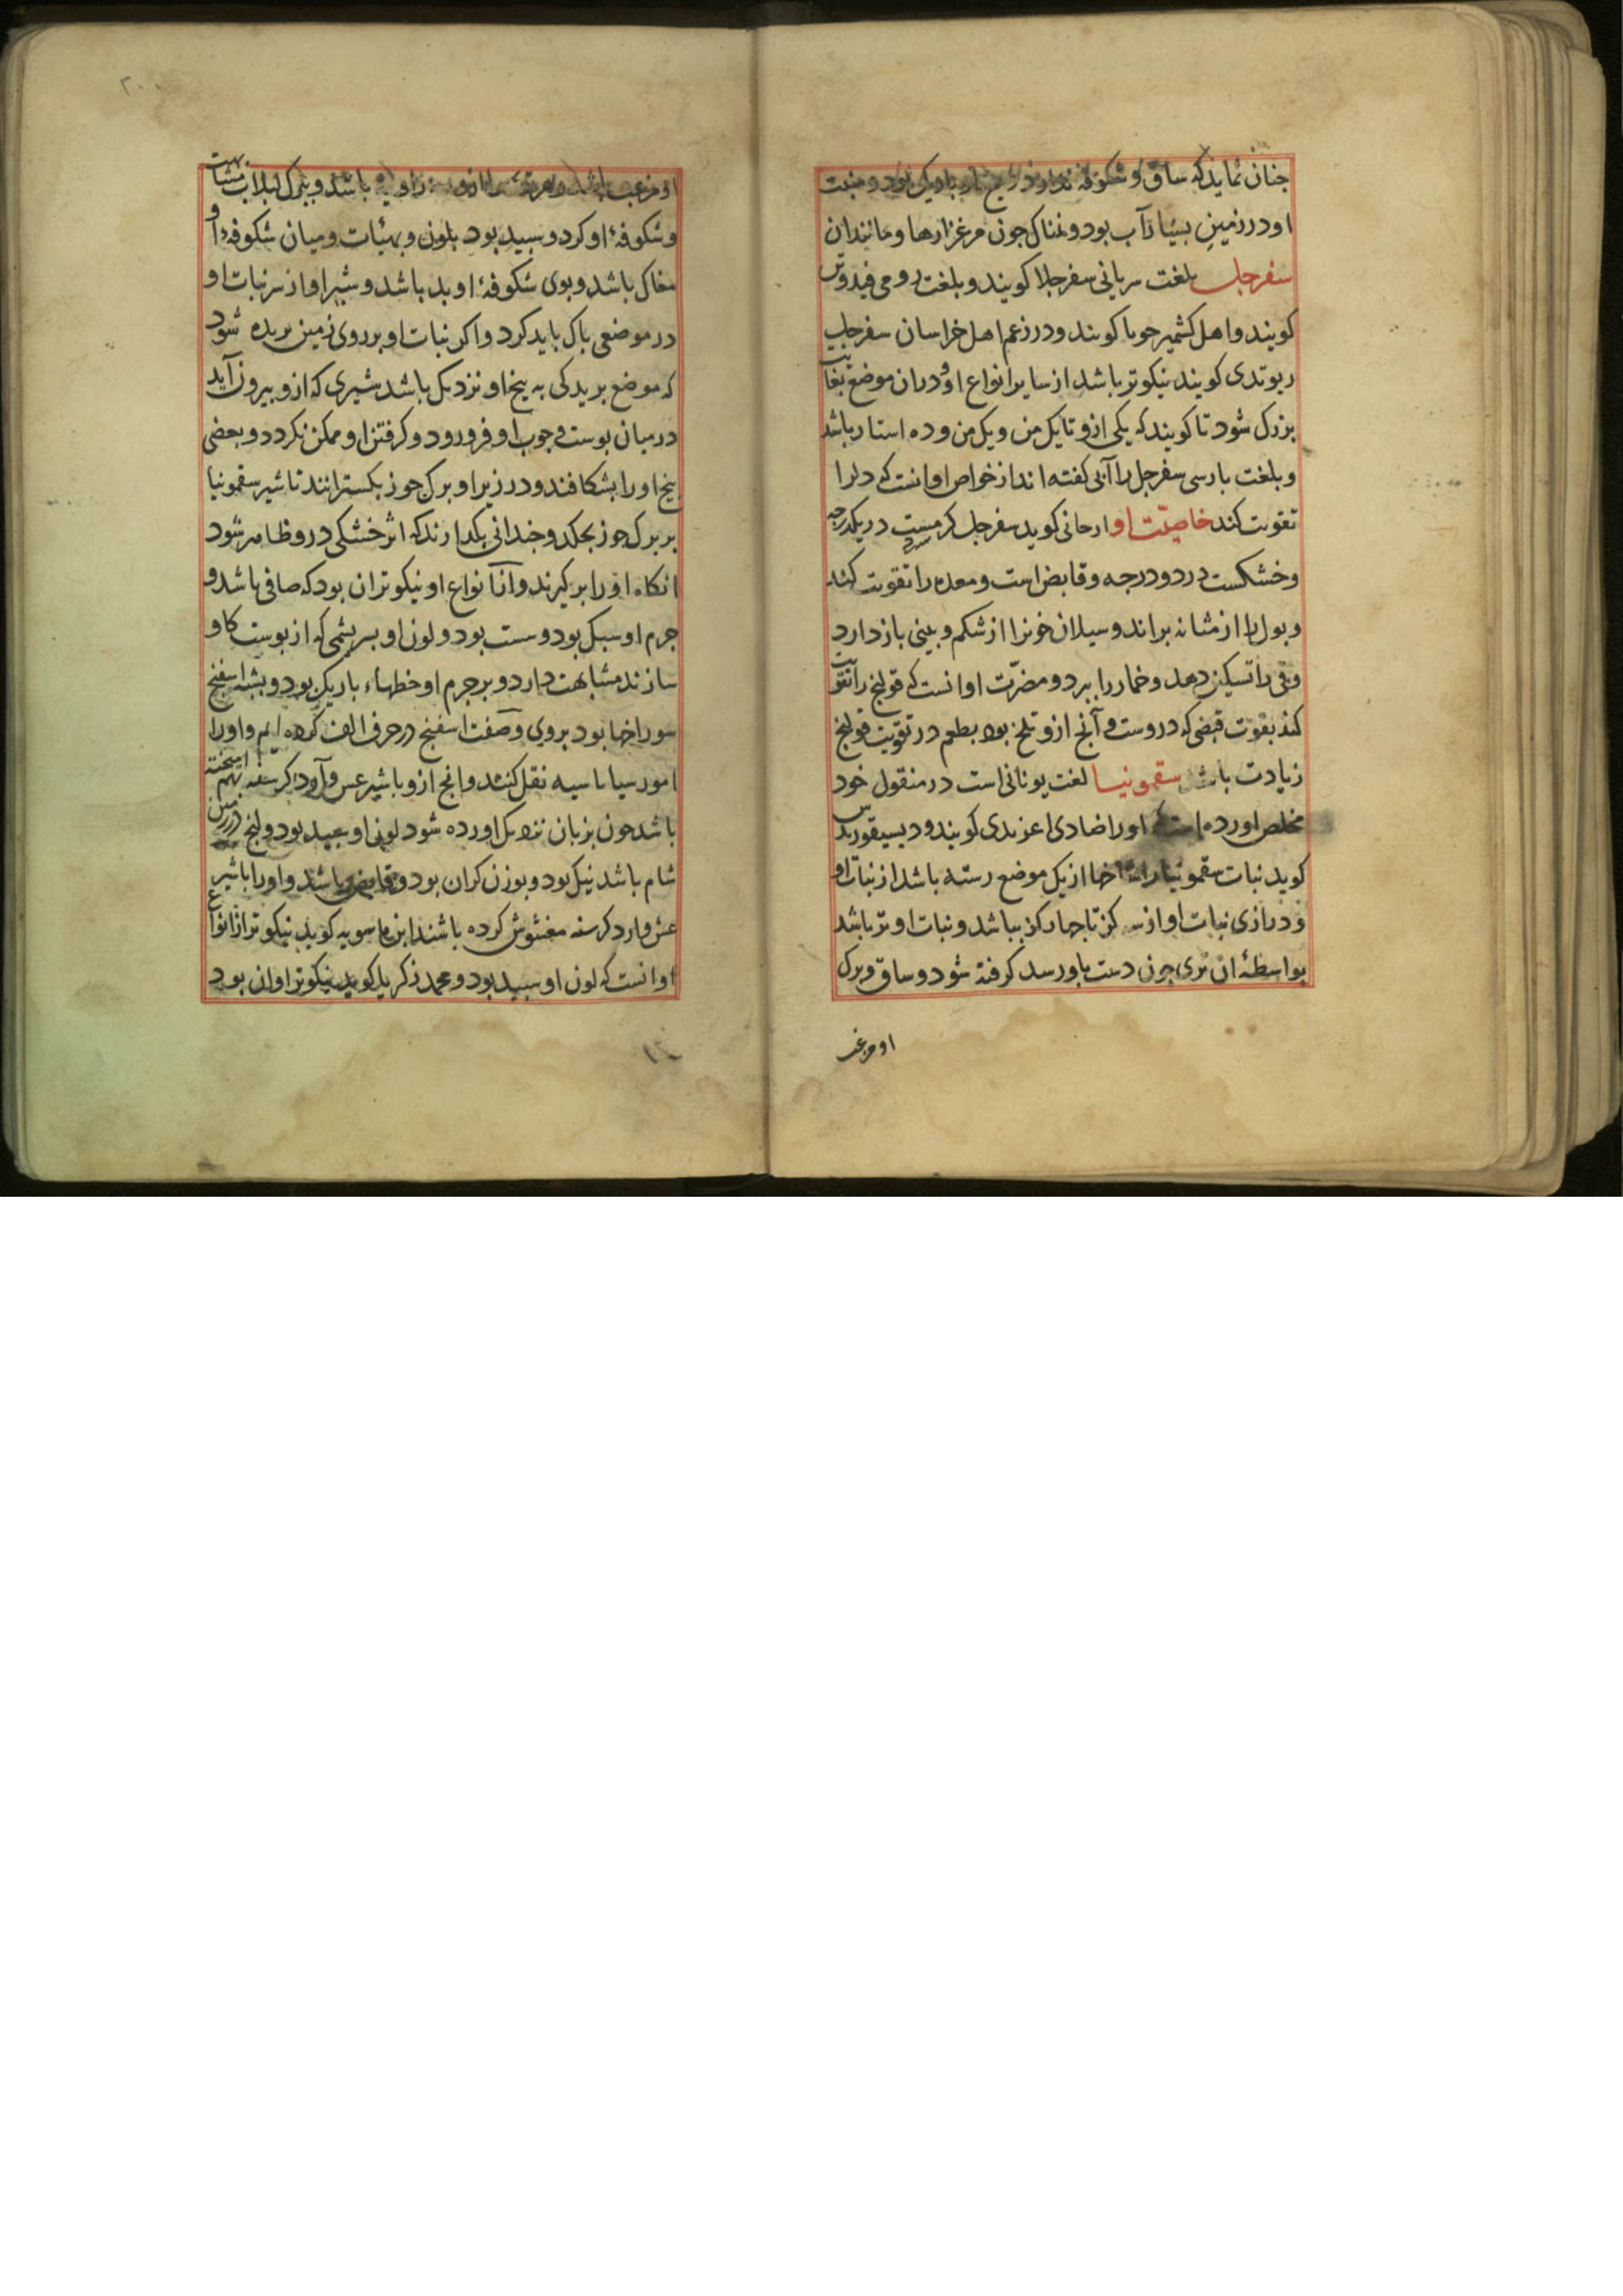 جنان نماید که ساق و شکوفه ندارد و بیخ او باریک بود و منبت
او در زمین بسیار آب بود و نمناک جون مرغزارها و مانند ان
سفرجل بلغت سریانی سفرجلا کویند و بلغت رومی
کویند و اهل کشمیر کویند و در زعم اهل خراسان سفرجل
ریوندی کویند نیکوتر باشد از سایر انواع او و در ان موضع بغایت
بزرک شود تا کویند که یکی ازو تا یک من و یک من و ده استار باشد
و بلغت بارسی سفرجل را آبی کفته اند از خواص او انست که دلرا
تقویت کند خاصیّت او ارجانی کوید سفرجل کرمست در یکدرجه
سرد
و خشکست در دو درجه و قابض است و معده را تقویت کند
و بول را از مثانه براند و سیلان خونرا از شکم و بینی باز دارد
و قی را تسکین دهد و خمار را ببرد و مضرّت او انست که قولنج را تقویت
کند بقوّت قبضی که دروست و آنج ازو تلخ بود بطعم در تقویت قولنج
زیادت باشد سقمونیا لغت یونانی است در منقول خود
مخلص اورده است که اورا کویند و دیسقوریدس
کوید نبات سقمونیا را شاخها از یک موضع رسته باشد از نبات او
و درازی نبات او از سه کز تا جهار کز بباشد و نبات او تر باشد
بواسطهٔ ان تری جون دست باو رسد کرفته شود و ساق و برک
او مزغب
او مزغب باشد و باشد و ببرک لبلاب مشابهت
و شکوفهٔ او کرد و سبید بود بلون و بهیٔات و میان شکوفهٔ او
مغاک باشد و بوی شکوفهٔ او بد باشد و شیر او از سر نبات او
در موضعی باک باید کرد و اکر نبات او بر روی زمین بریده شود
که موضع بریدکی به بیخ او نزدیک باشد شیری که ازو بیرون آید
در میان بوست و جوب او فرو رود و کرفتن او ممکن نکردد و بعضی
بیخ او را بشکافند و در زیر او برک جوز بکسترانند تا شیر سقمونیا
بر برک جوز بجکد و جندانی بکذارند که اثر خشکی درو ظاهر شود
انکاه او را بر کیرند و از انواع او نیکوتر ان بود که صافی باشد و
جرم او سبک بود و سست بود و لون او بسریشمی که از بوست کاو
سازند مشابهت دارد و بر جرم او خطهاء باریک بود و بشبه اسفنج
سوراخها بود بروی و صفت اسفنج در حرف الف کرده ایم و اورا
نقل کنند و انج ازو با شیر عشر و آرد کرسنه بهم امیخته
باشد جون بزبان نزدیک اورده شود لون او سبید بود و انج در زمین
شام باشد نیک بود و بوزن کران بود و قابض باشد و اورا با شیر
عشر و ارد کرسنه مغشوش کرده باشند ابن ماسویه کوید نیکوتر از انواع
او انست که لون او سبید بود و محمد زکریا کوید نیکوتر او ان بود